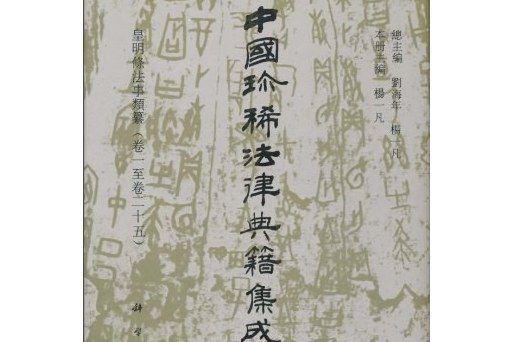 總主編 劉海年 楊一凡
本册主編 楊一凡
中國珍稀法律典籍集成
皇明條法事類纂(卷一至卷二十五)
科學